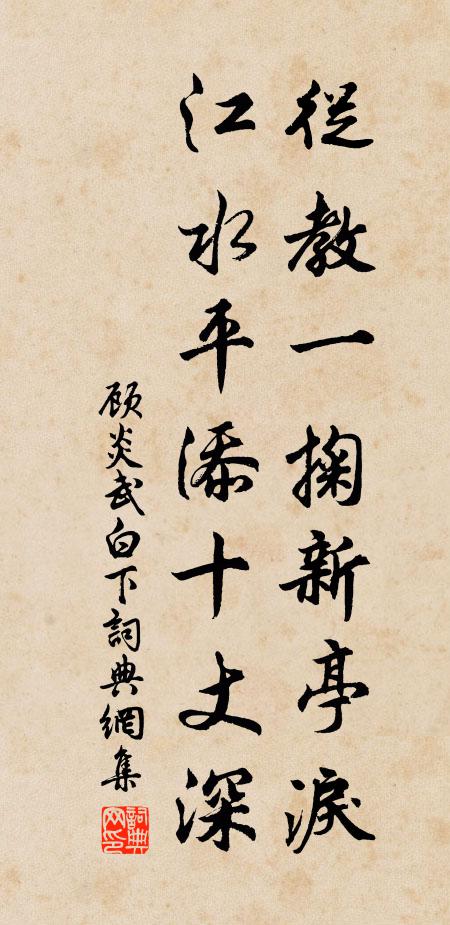 從教一掬新亭淚
江水平添十丈深
顾炎武白下詞典網集
詞典网印